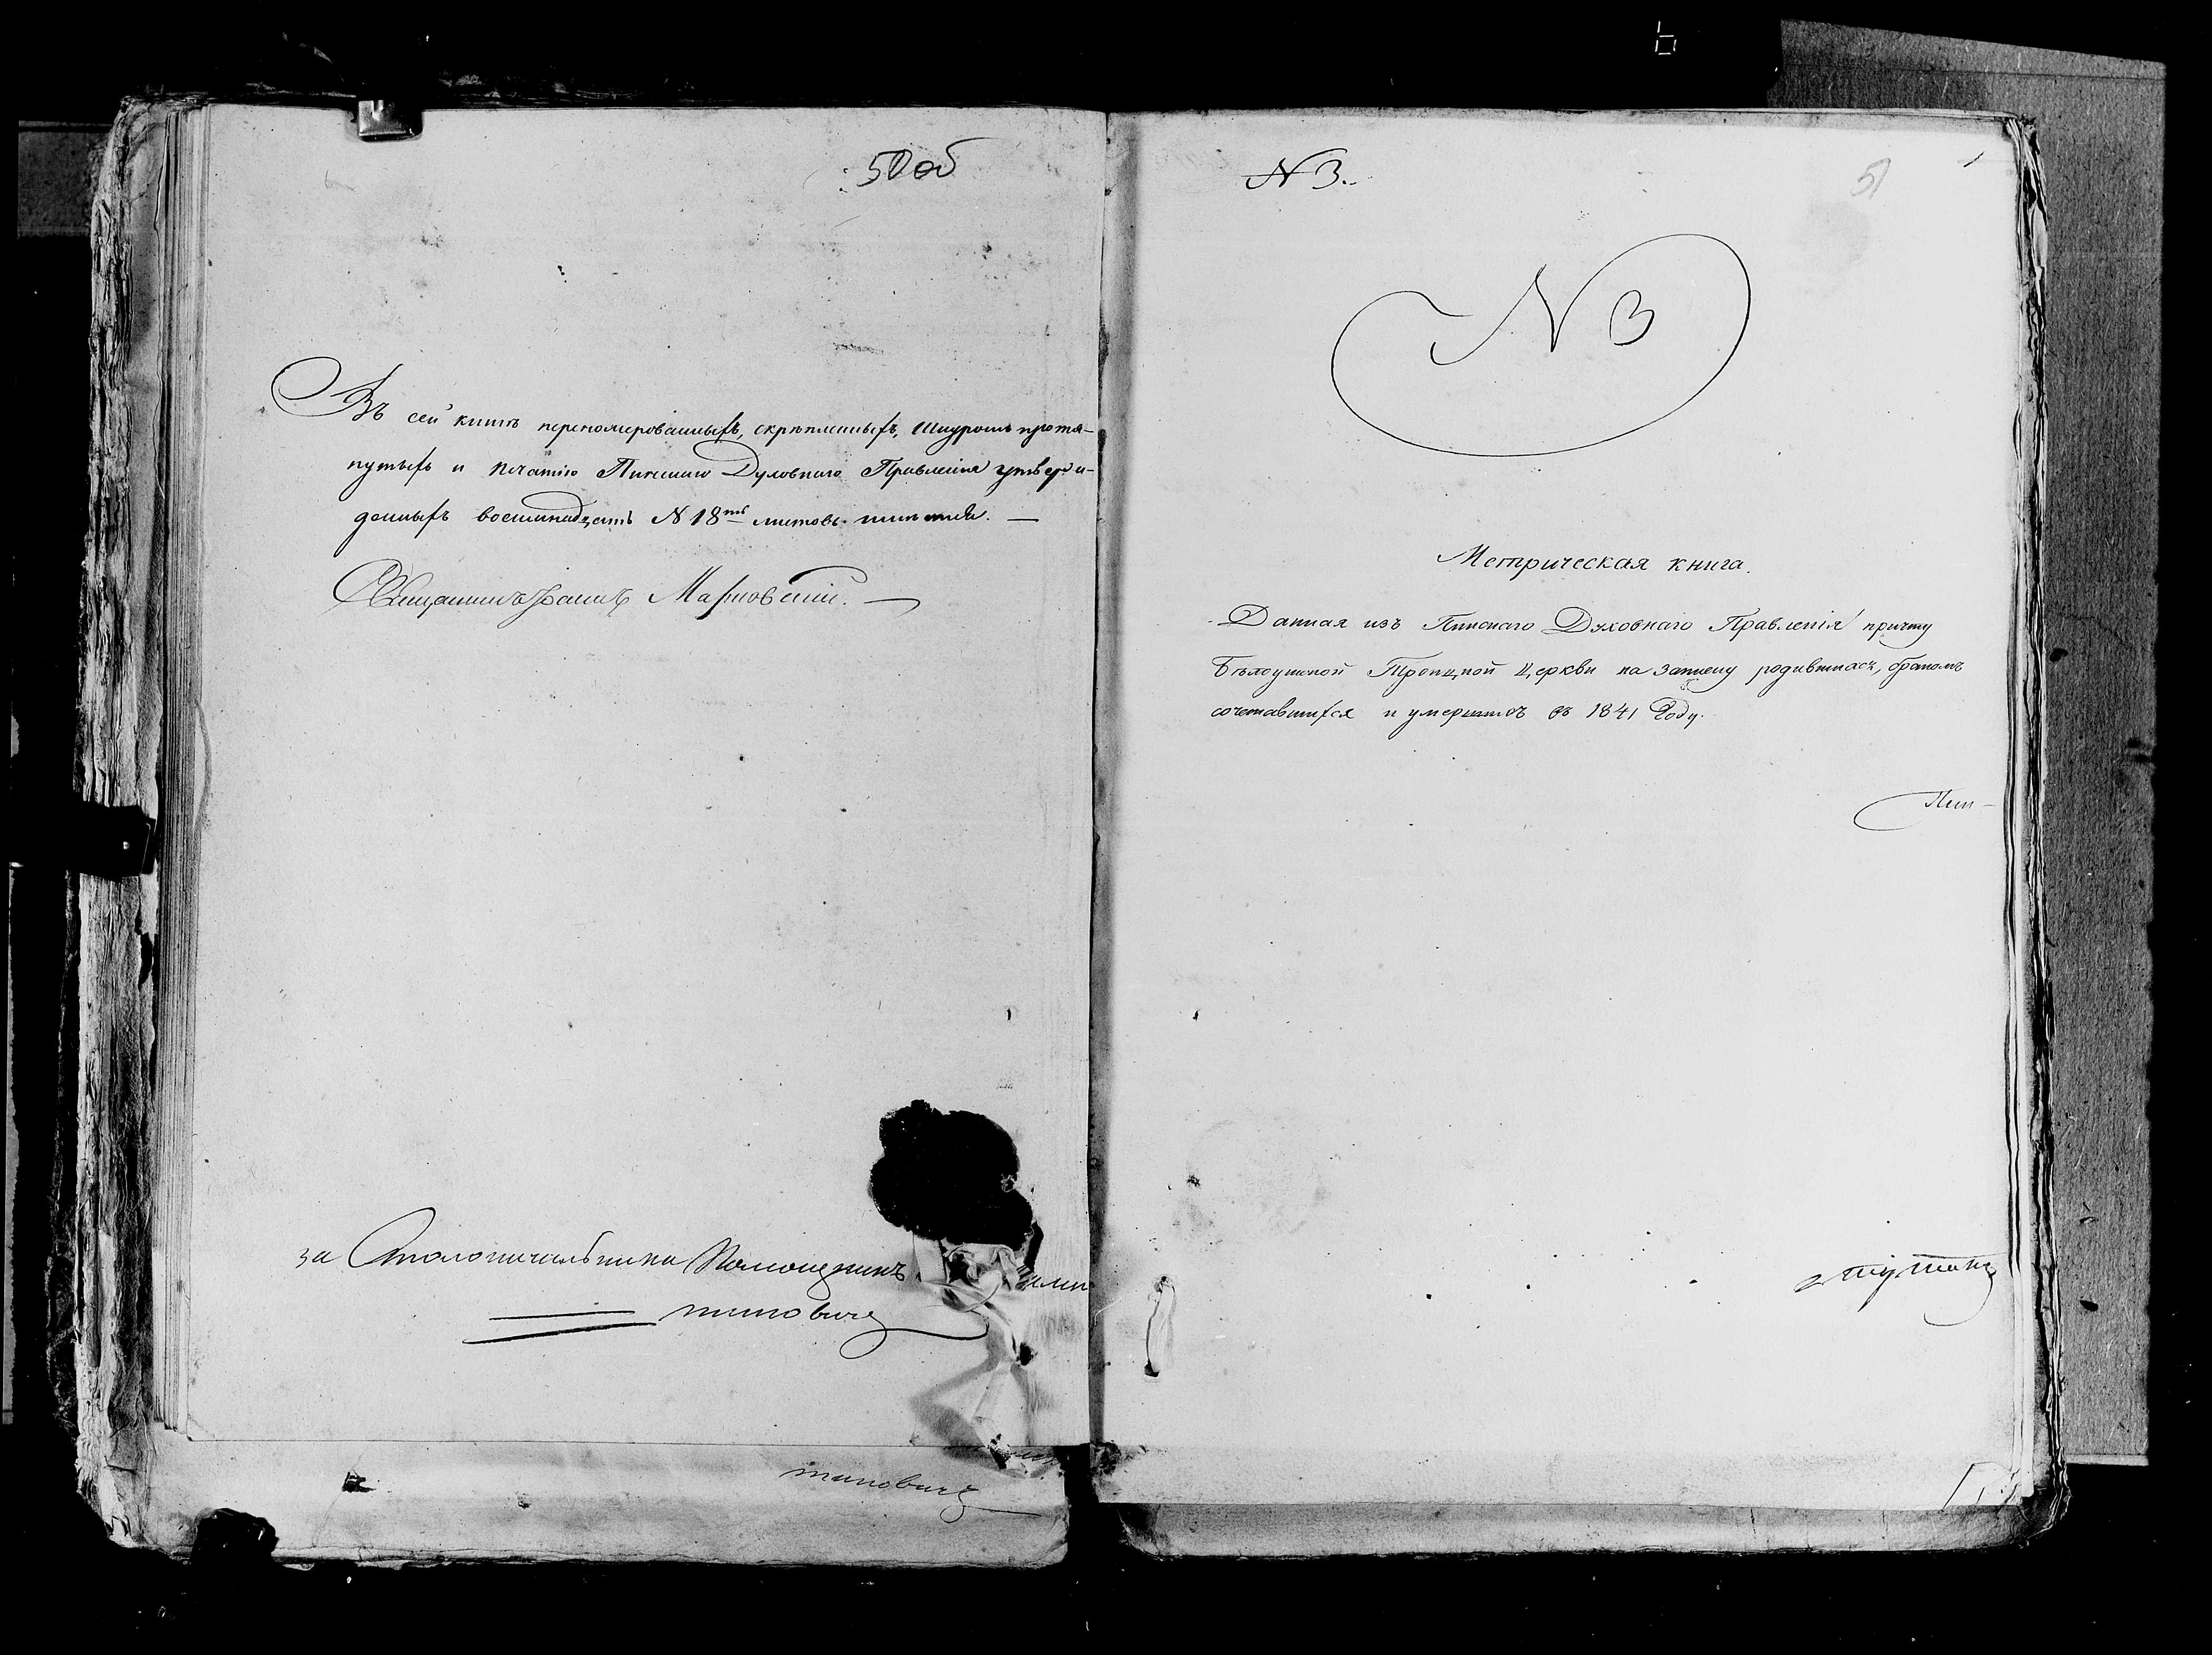 50 об
Въ сей книгѣ переномерованныхъ, скрѣпленныхъ, Шнуромъ протя-
нутыхъ и печатью Пинскаго Духовнаго Правленія утверж-
денныхъ восемнадцать N 18ть листовъ
Священникъ
за Столоначальника Помощникъ
тиновичъ
N 3.
51
N 3
Метрическая книга.
Данная изъ Пинскаго Духовнаго Правленія причту
Бѣлоушской Троицкой Церкви на записку родившихся, бракомъ
сочетавшихся и умершихъ въ 1841 Году.
Пин-
тиновичъ